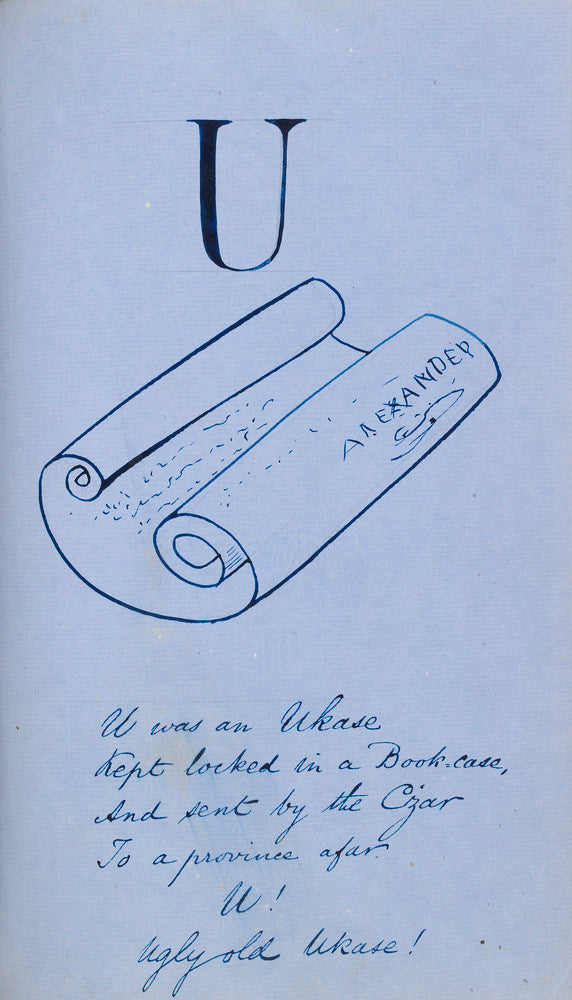 U
ALEXANDER
U was an Ukase
Kept locked in a Book-case,
And sent by the Czar
To a province afar.
U!
Ugly old Ukase!